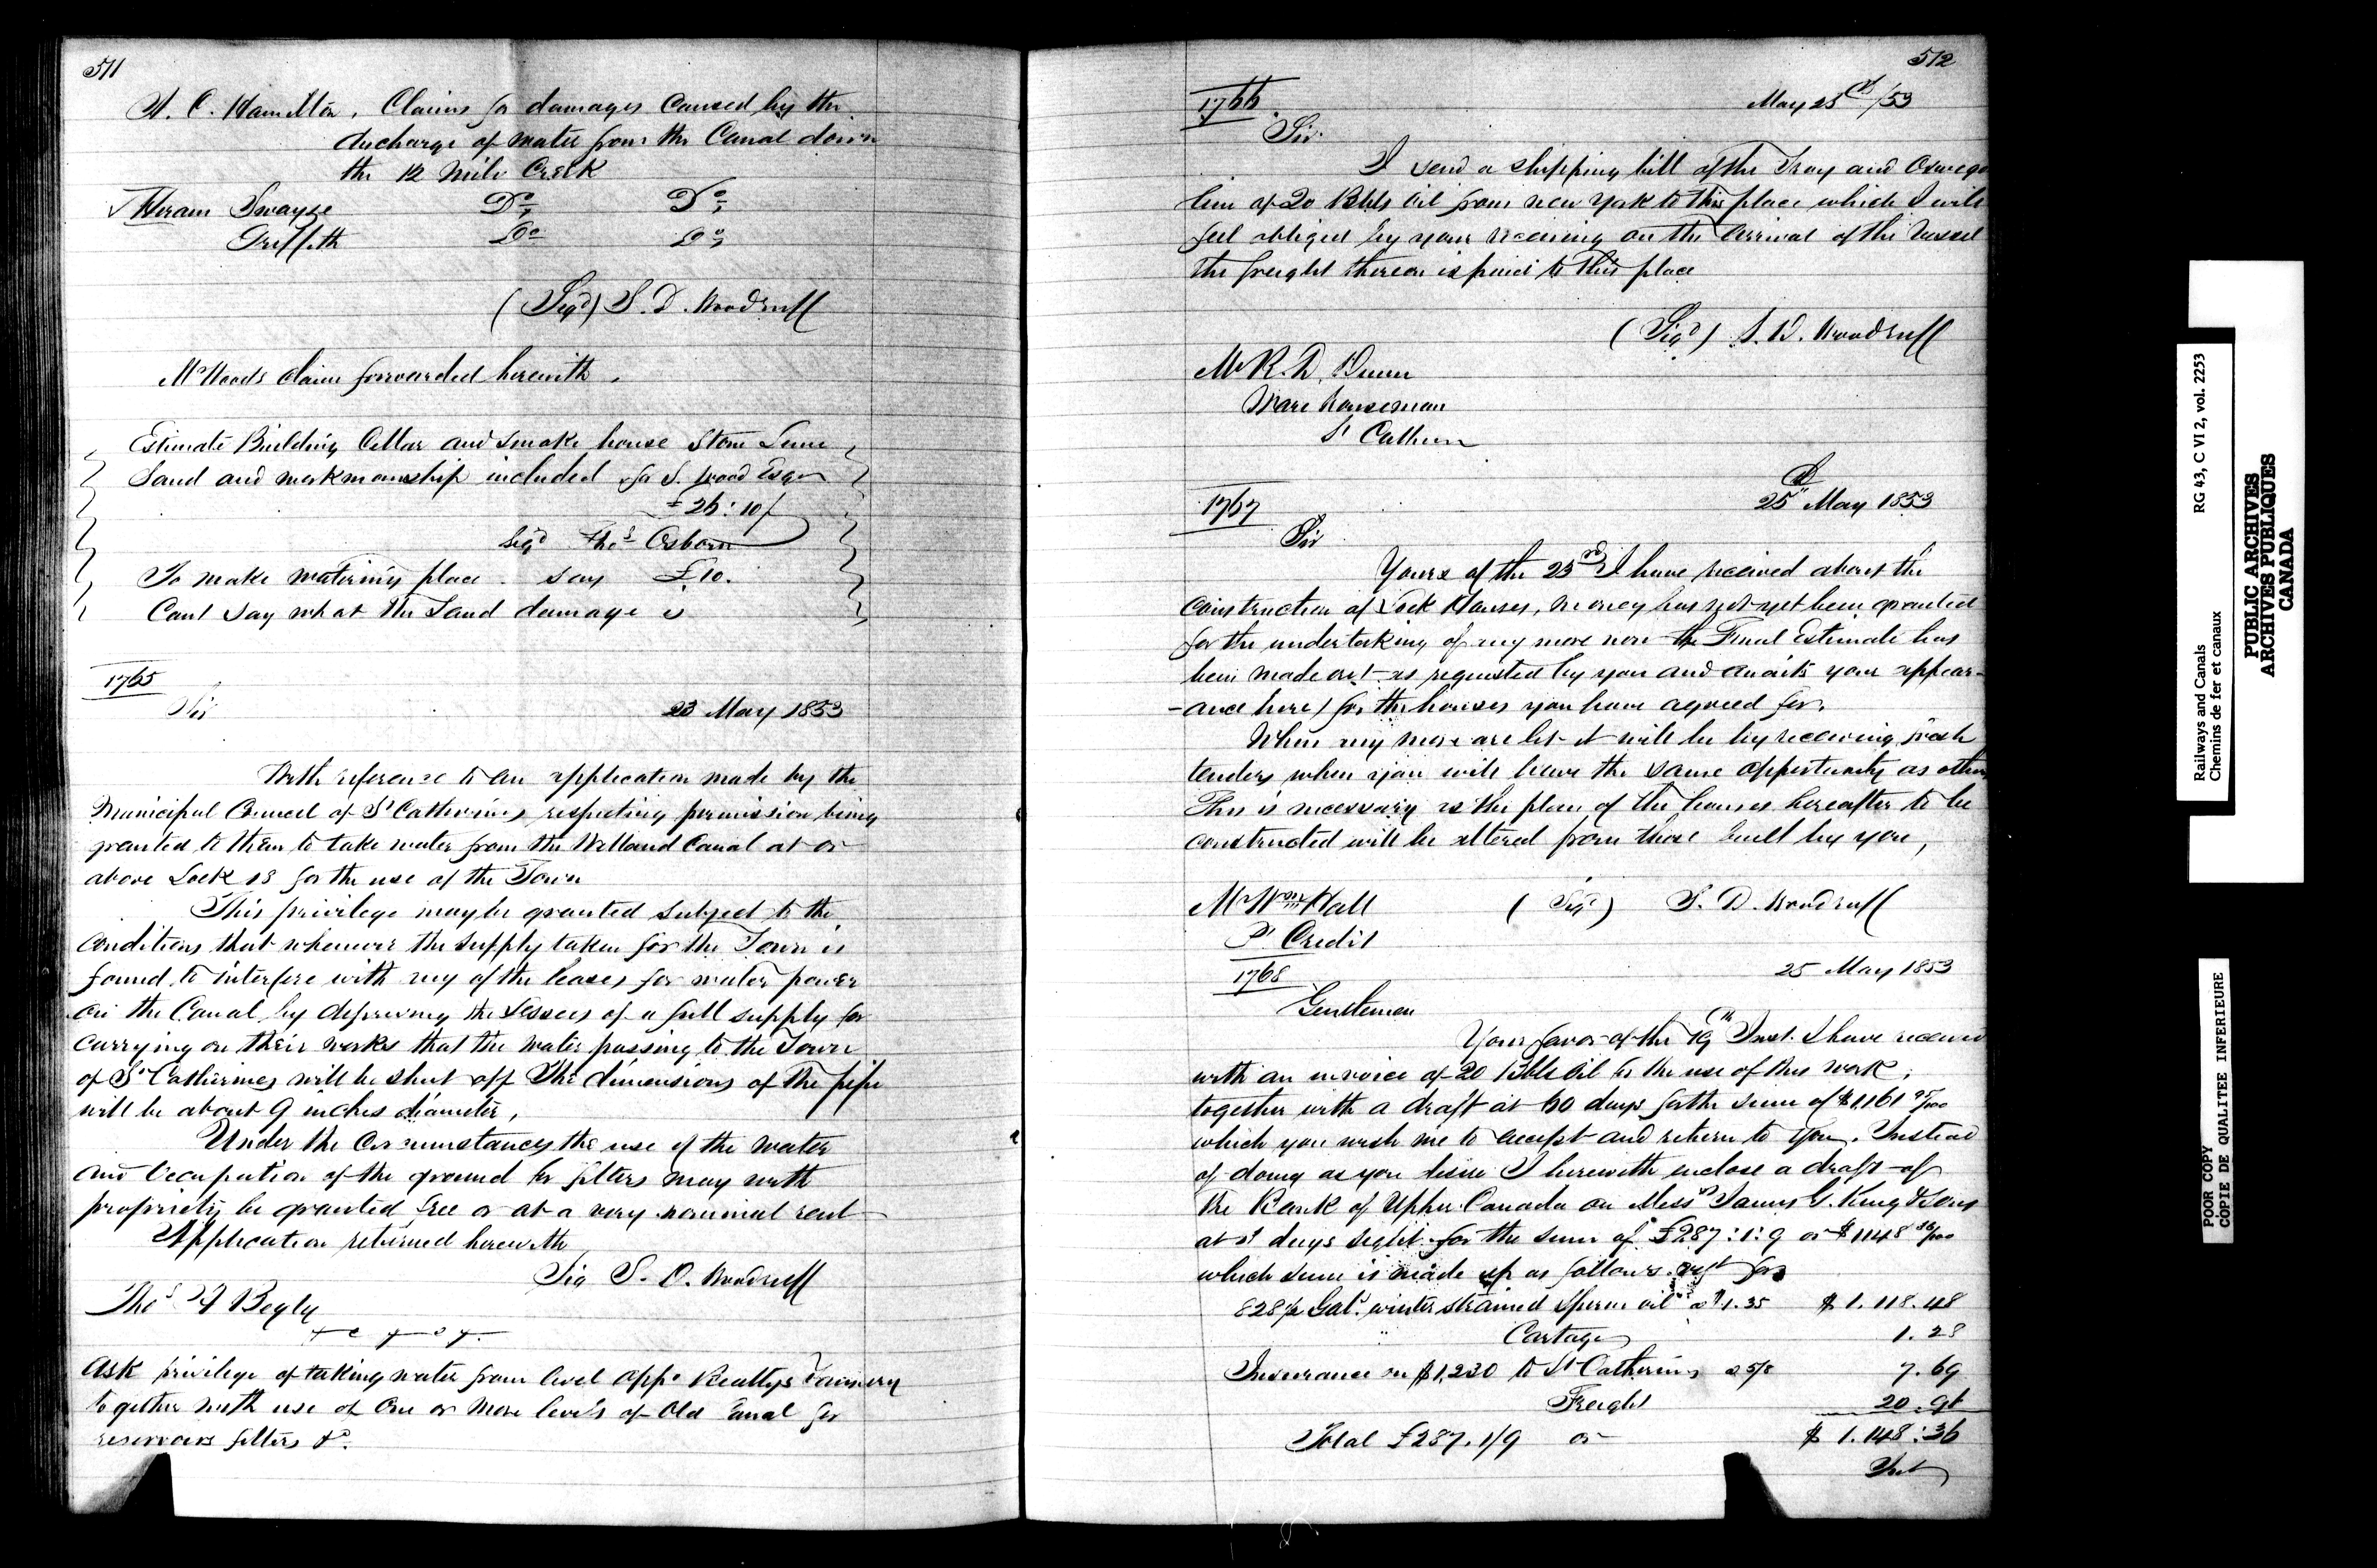 511
H. C. Hamilton, Claims for damages Caused by the
discharge of water from the Canal down
the 12 Mile Creek
Hiram Swayze Do Do
Griffith Do Do
(Sigd) S. D. Woodruff
Mr Woods claim forwarded herewith.
Estimate Building Cellar and smoke house Stone Lime
Sand and workmanship included for S. Wood Esqr
£26:10/
Sigd Thos Osborn
To make watering place. say £10.
Cant say what the Land damage is
1765
Sir
23 May 1853
With reference to an application made by the
Municipal Council of St Catherines respecting permission being
granted to them to take water from the Welland Canal at or
above Lock 13 for the use of the Town
This privilege may be granted subject to the
conditions that whenever the supply taken for the Town is
found to interfere with any of the leases for water power
on the Canal by depriving the Lessees of a full supply for
carrying on their works that the water passing to the Town
of St Catherines will be shut off The dimensions of the pipe
will be about 9 inches diameter,
Under the Circumstances the use of the water
and Occupation of the ground for filters may with
propriety be granted free or at a very nominal rent
Application returned herewith
Sig S. D. Woodruff
Thos A Begly
Ask privilege of taking water from level oppo Beattys
together with use of One or More levels of Old Canal for
reservoirs filters &c.
512
1766
May 25th/53
Sir
I send a shipping bill of the Troy and Oswego
line of 20 Bbls Oil from New York to this place which I will
feel obliged by your receiving on the Arrival of the Vessel
the freight thereon is paid to this place
(Sigd) S. D. Woodruff
Mr R. D. Dunn
Ware houseman
St Catherines
1767
25th May 1853
Sir
Yours of the 23rd I have received about the
construction of Lock Houses, money has not yet been granted
for the undertaking of any more now the Final Estimate has
been made out as requested by you and awaits your appear-
-ance here) for the houses you have agreed for.
When any more are let it will be by receiving fresh
tenders when you will have the same opportunity as others
This is necessary as the plan of the houses hereafter to be
constructed will be altered from those built by you,
Mr Wm Hall (Sigd) S. D. Woodruff
Pt Credit
1768
25 May 1853
Gentlemen
Your favor of the 19th Inst. I have received
with an invoice of 20 Bbls Oil for the use of this work,
together with a draft at 60 days for the sum of $1,161
which you wish me to accept and return to you. Instead
of doing as you desire I herewith enclose a draft of
the Bank of Upper Canada on Messrs James G. King & Sons
at 3 days sight for the sum of £287:1:9 or $1148 36/100
which sum is made up as follows
828½ Gals. winter strained Sperm oil a $1.35 $1.118.48
Cartage 1.23
Insurance on $1,230 to St Catherines a 5/8 7.69
Freight 20.96
Total £287.1/9 or $1.148:36